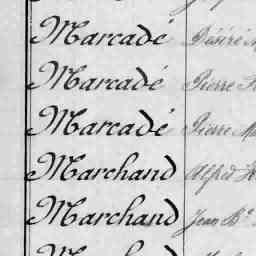 Marcadé Désiré
Marcadé Pierre
Marcadé Pierre
Marchand Alfred
Marchand Jean Bte